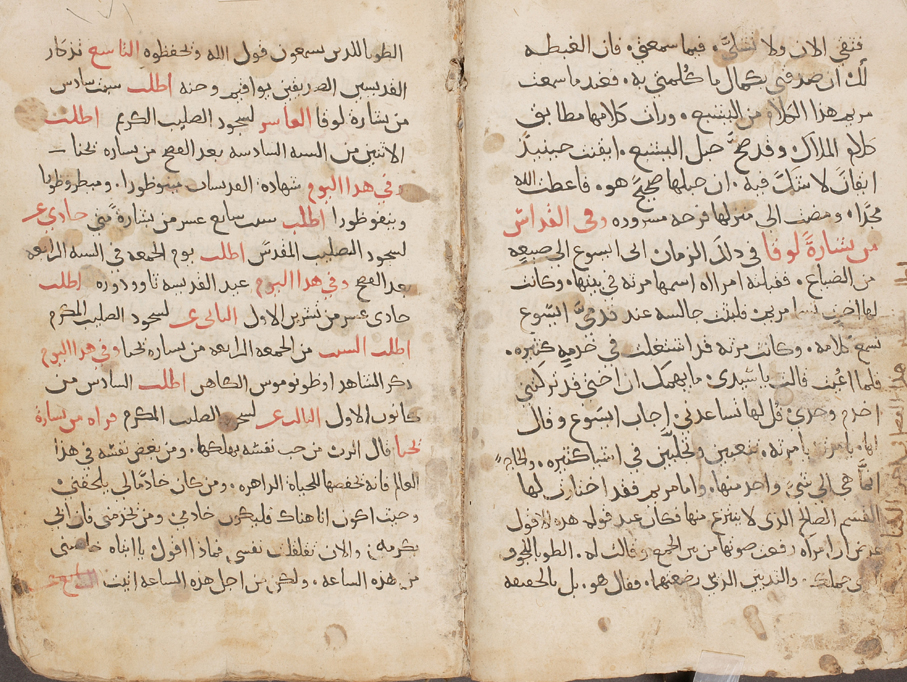 فثقي الان ولا تشكي. فيما سمعتي. فان الغبطه
لك ان صدقتي بكمال ما كُلمتي به. فعند ما سمعت
مريم هذا الكلام من اليشبع. ورات كلامها مطابق
كلام الملاك وقد صح حبل اليشبع. ايقنت حينيذ
ايقان لا شك فيه. ان حبلها صحيح هو. فاعطت الله
مجدا. ومضت الى منزلها فرحه مسروره وفي القداس
من بشارة لوقا في ذلك الزمان اتى ايسوع الى ضيعه
من الضياع. فقبلته امراه اسمها مرته في بيتها. وكانت
لها اخت اسمها مريم فلبثت جالسه عند قدمي ايسوع
تسمع كلامه. وكانت مرته قد اشتغلت في خدمه كثيره.
فلما اعيت قالت يا سيدي. ما يهمك ان اختي قد تركتني
اخدم وحدي قل لها تساعدني. اجاب ايسوع وقال
لها. يا مرته يا مرته. تتعبين وتجلبين في اشيا كثيره. والحاجه
انما هي الى شي واحد منها. واما مريم فقد اختارت لها
القسم الصالح الذي لا ينتزع منها فكان عند قوله هذه الاقوال
عرض ان امراه رفعت صوتها من بين الجمع وقالت له. الطوبا للجوف
الذي حملك. والثديين الذي رضعتهما. فقال هو. بل بالحقيقه
الطوبا للذين يسمعون قول الله ويحفظوه التاسع تذكار
القديسين الصديقين يواقيم وحنه اطلب سبت سادس
من بشاره لوقا العاشر لسجود الصليب الكريم اطلب
الاثنين من السبه السادسه بعد الفصح من بشاره يحنا
وفي هذا اليوم شهاده القديسات مينوظورا. وميطروظورا
ونيمفوظورا اطلب سبت سابع عشر من بشارة متى حادي عشر
لسجود الصليب المقدس اطلب يوم الجمعه في السبه الرابعه
بعد الفصح وفي هذا اليوم عيد القديسه ثاوودوره اطلب
حادي عشر من تشرين الاول الثاني عشر لسجود الصليب المكرم
اطلب السبت من الجمعه الرابعه من بشاره يحنا وفي هذا اليوم
ذكر الشاهد اوطونوموس الكاهن اطلب السادس من
كانون الاول الثالث عشر لسجود الصليب المكرم قراه من بشارة
يحنا قال الرب من حب نفسه يهلكها. ومن بغض نفسه في هذا
العالم فانه يحفظها للحياة الزاهره. ومن كان خادما لي يلحقني
وحيث اكون انا هناك فليكون خادمي ومن يخدمني فان ابي
يكرمه. والان تقلقلت نفسي فماذا اقول يا ابتاه خلصني
من هذه الساعه. ولكن من اجل هذه الساعه اتيت